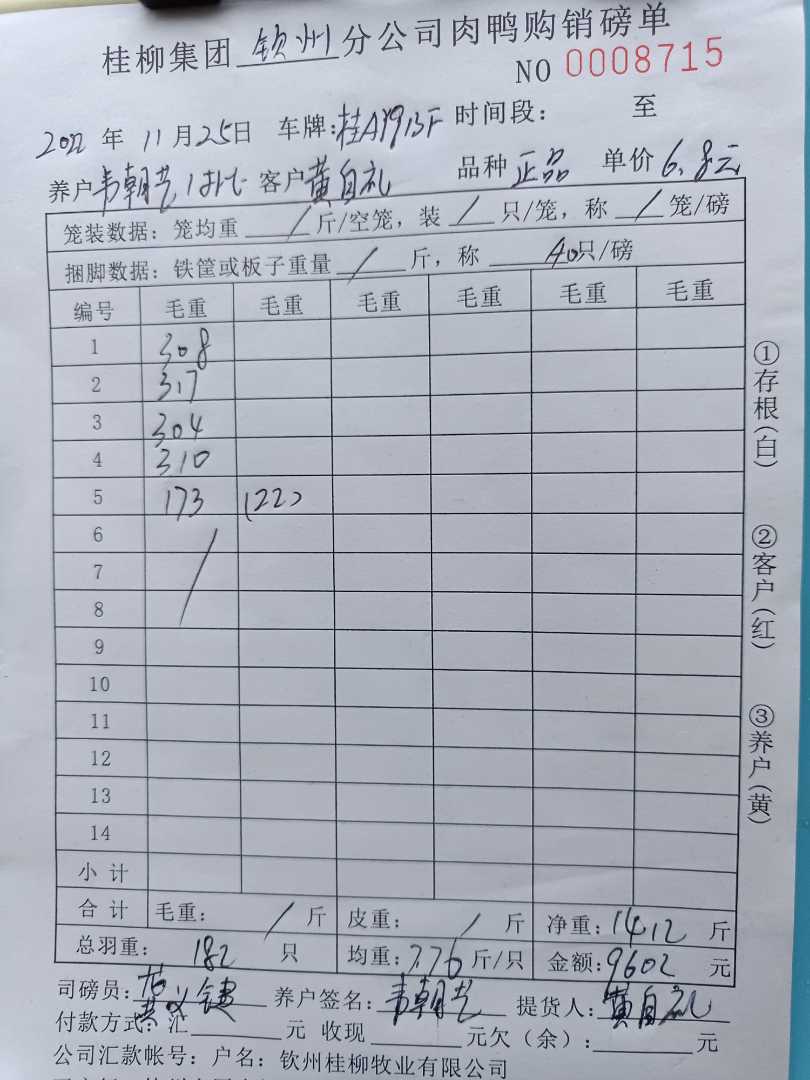 桂柳集团 钦州 分公司肉鸭购销磅单
NO 0008715
2022 年 11 月 25 日 车牌: 时间段: 至
养户 韦朝艺 客户 黄自礼 品种 正品 单价 6.8元
笼装数据: 笼均重 / 斤/空笼, 装 / 只/笼, 称 / 笼/磅
捆脚数据: 铁筐或板子重量 / 斤, 称 40只/磅
编号 毛重 毛重 毛重 毛重 毛重 毛重
1 308
2 317
3 304
4 310
5 173 (22)
6
7
8
9
10
11
12
13
14
小计
合计 毛重: / 斤 皮重: / 斤 净重: 1412 斤
总羽重: 182 只 均重: 7.76 斤/只 金额: 9602 元
司磅员: 养户签名: 韦朝艺 提货人: 黄自礼
付款方式: 汇 元 收现 元欠(余): 元
公司汇款帐号: 户名: 钦州桂柳牧业有限公司
①存根(白)
②客户(红)
③养户(黄)